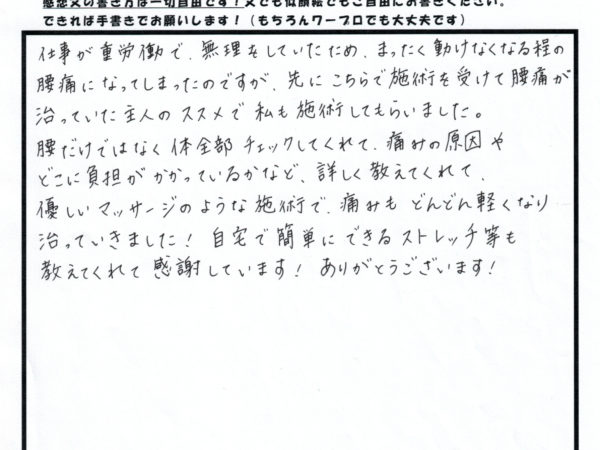 感想文の書き方は一切自由です！文でも似顔絵でもご自由にお書きください。
できれば手書きでお願いします！（もちろんワープロでも大丈夫です）
仕事が重労働で、無理をしていたため、まったく動けなくなる程の
腰痛になってしまったのですが、先にこちらで施術を受けて腰痛が
治っていた主人のススメで私も施術してもらいました。
腰だけではなく体全部チェックしてくれて、痛みの原因や
どこに負担がかかっているかなど、詳しく教えてくれて、
優しいマッサージのような施術で、痛みもどんどん軽くなり
治っていきました！自宅で簡単にできるストレッチ等も
教えてくれて感謝しています！ありがとうございます！